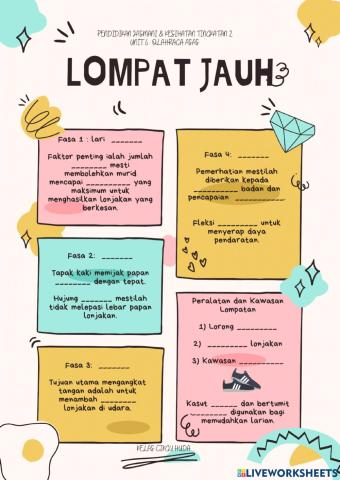 PENDIDIKAN JASMANI & KESIHATAN TINGKATAN 2
UNIT 6: OLAHRAGA ASAS
LOMPAT JAUH
Fasa 1 : lari _______
Faktor penting ialah jumlah
________ mesti
membolehkan murid
mencapai _________ yang
maksimum untuk
menghasilkan lonjakan yang
berkesan.
Fasa 2: _______
Tapak kaki memijak papan
________ dengan tepat.
Hujung _______ mestilah
tidak melepasi lebar papan
lonjakan.
Fasa 3: _______
Tujuan utama mengangkat
tangan adalah untuk
menambah ________
lonjakan di udara.
Fasa 4: _______
Pemerhatian mestilah
diberikan kepada
_________ badan dan
pencapaian __________.
Fleksi _________ untuk
menyerap daya
pendaratan.
Peralatan dan Kawasan
Lompatan
1) Lorong __________
2) _________ lonjakan
3) Kawasan __________
Kasut ______ dan bertumit
________ digunakan bagi
memudahkan larian.
KELAS CIKGU HUDA
LIVEWORKSHEETS